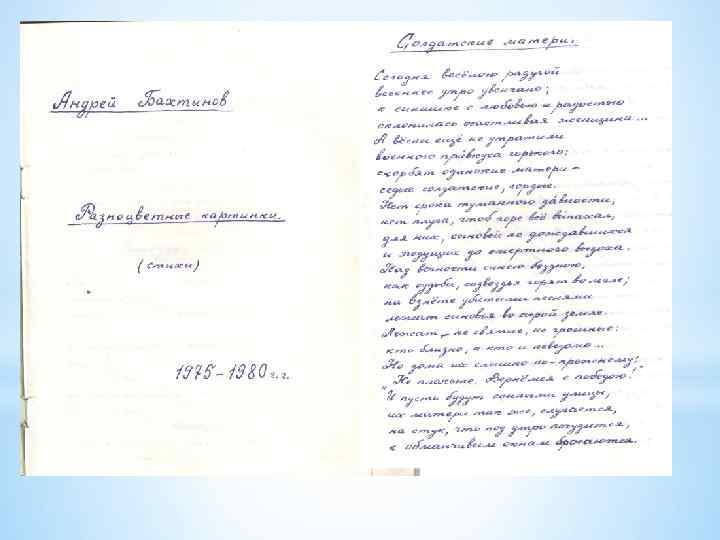 Андрей Бахтинов
Разноцветные картинки
(стихи)
1975–1980 г.г.
Солдатские матери.
Сегодня весёлою радугой
весеннее утро увенчано;
к сынишке с любовью и радостью
склонилась счастливая женщина...
А вёсны ещё не утратили
военного привкуса горького;
скорбят одинокие матери –
седые солдатские, гордые.
Нет срока туманного давности,
нет плуга, чтоб горе всё вспахал,
для них, сыновей не дождавшихся
и ждущих до смертного вздоха.
Над вечности синею бездною,
как судьбы, созвездья горят во мгле;
на взлёте убитыми песнями
лежат сыновья во сырой земле.
Лежат – не святые, не грешные:
кто близко, а кто и неведомо...
Но дома их слышно по-прежнему:
"Не плачьте. Вернёмся с победою!"
И пусть будут сонными улицы,
их матери так же, случается,
на стук, что под утро почудится,
к обманчивым окнам бросаются.